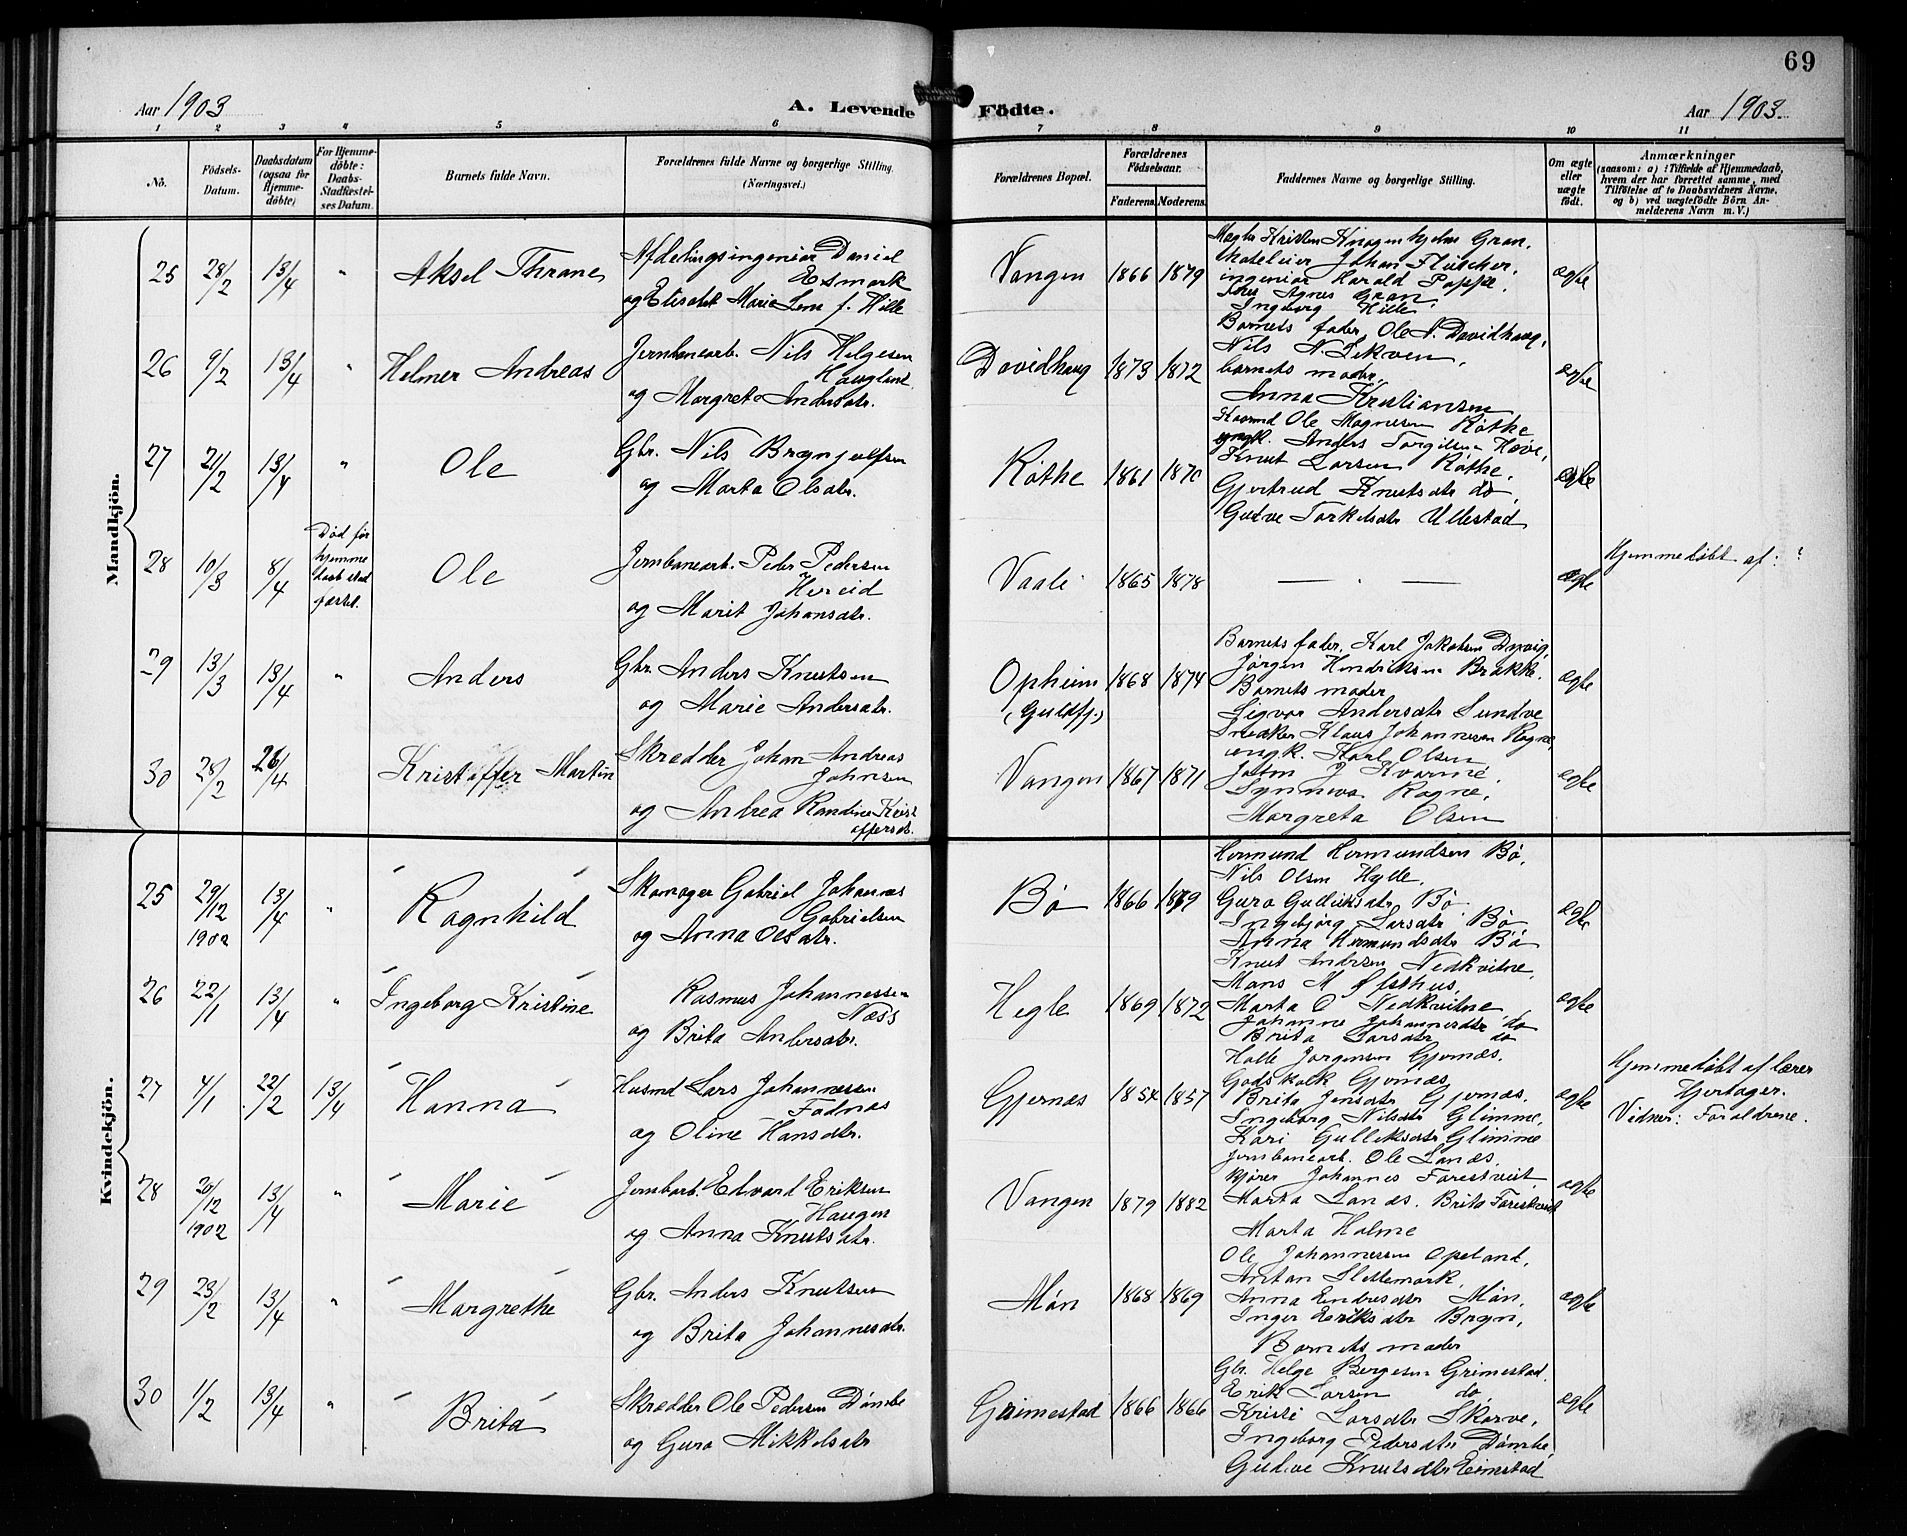 69
Aar 1903
A. Levende Födte.
Aar 1903.
1 2 3 4 5 6 7 8 9 10 11
No.
Födsels-
Datum.
Daabsdatum
(ogsaa for
Hjemme-
döbte)
For Hjemme-
döbte:
Daabs-
Stadfæstel-
ses Datum.
Barnets fulde Navn.
Forældrenes fulde Navne og borgerlige Stilling.
(Næringsvei.)
Forældrenes Bopæl.
Forældrenes
Födselsaar.
Faderens. Moderens.
Faddernes Navne og borgerlige Stilling.
Om ægte
eller
uægte
födt.
Anmærkninger
(saasom: a) i Tilfælde af Hjemmedaab,
hvem der har forrettet samme, med
Tilföielse af to Daabsvidners Navne,
og b) ved uægtefödte Börn An-
melderens Navn m. V.)
Mandkjön.
25 28/2 13/4 " Aksel Thrane
Afdelingsingeniør Daniel
Esmark
og Elisabet Marie Lem f. Hille
Vangen 1866 1879
ingeniør Harald Poppe,
Frk. Agnes Gran,
Ingeborg Hille
ægte
26 9/2 13/4 " Helmer Andreas
Jernbanearb. Nils Helgesen
Haugland
og Margreta Andersdtr.
Davidhaug 1873 1872
Barnets fader, Ole N. Davidhaug,
Nils N. Lekven,
barnets moder,
Anna Kristiansen
ægte
27 21/2 13/4 " Ole
Gbr. Nils Brynjulfsen
og Marta Olsdtr.
Røthe 1861 1870
Kaarmd Ole Magnesen Røthe
ungk. Anders Torgilsen Hæve,
Knut Larsen Røthe,
Gjertrud Knutsdtr do,
Gudve Torkelsdtr Ullestad
ægte
28 10/3 8/4
Død før
hjemme
daab stad
fæstet.
Ole
Jernbanearb. Peder Pedersen
Hereid
og Marit Johansdtr.
Vaale 1865 1878
— " —
ægte
Hjemmedøbt af: ?
29 13/3 13/4 " Anders
Gbr. Anders Knutsen
og Marie Andersdtr.
Opheim
(Guldfj.)
1868 1874
Barnets fader, Karl Jakobsen Dyrvig,
Jørgen Hendriksen Brekke,
Barnets moder
Sigvor Andersdtr Sundve
ægte
30 28/2 26/4 Kristoffer Martin
Skredder Johan Andreas
Johnsen
og Andrea Randine Krist
offersdt.
Vangen 1867 1871
Snedker Klaus Johannesen Rogne,
ungk. Karl Olsen
John J Kvarme,
Synneva Rogne,
Margreta Olsen
ægte
Kvindekjön.
25 29/12 1902 13/4 " Ragnhild
Skomager Gabriel Johannes
Gabrielsen
og Anna Olsdtr.
Bø 1866 1879
Hermund Hermundsen Bø,
Nils Olsen Hylle,
Guro Gulleiksdtr Bø
Ingebjørg Larsdtr Bø,
Anna Hermundsdtr Bø
ægte
26 22/1 13/4 " Ingeborg Kristine
Rasmus Johannessen
Næss
og Brita Andersdtr.
Hegle 1869 1872
Knut Andersen Nedkvitne,
Mons M Øfsthus,
Marta O Nedkvitne,
Johanne Johannesdtr do
Brita Larsdtr do
ægte
27 4/1 22/2 13/4 Hanna
Husmd Lars Johannesen
Fadnes
og Oline Hansdtr.
Gjernes 1854 1857
Halle Jørgensen Gjernæs,
Godskalk Gjernæs,
Brita Jensdtr Gjernæs,
Ingeborg Nilsdtr Glimme,
Kari Gulleiksdtr Glimme
ægte
Hjemmedøbt af lærer
Hjortager.
Vidner: Forældrene.
28 20/12 1902 13/4 " Marie
Jernbarb. Edvard Eriksen
Haugen
og Anna Knutsdtr.
Vangen 1879 1882
Jernbanearb. Ole Sandes,
kjører Johannes Farestveit
Marta Sandes, Brita Farestveit
Marta Holme
ægte
29 23/2 13/4 " Margrethe
Gbr. Anders Knutsen
og Brita Johannesdtr.
Møn 1868 1869
Ole Johannessen Opeland,
Anton Slettemark,
Anna Endresdtr Møn,
Inger Eriksdtr Bryn,
Barnets moder
ægte
30 1/2 13/4 " Brita
Skredder Ole Pedersen Dømbe
og Guro Mikkelsdtr
Grimestad 1866 1866
Gbr. Helge Bergesen Grimestad,
Erik Larsen do,
Kristi Larsdtr Skorve,
Ingeborg Pedersdtr Dømbe,
Gudve Knutsdtr Eimstad
ægte